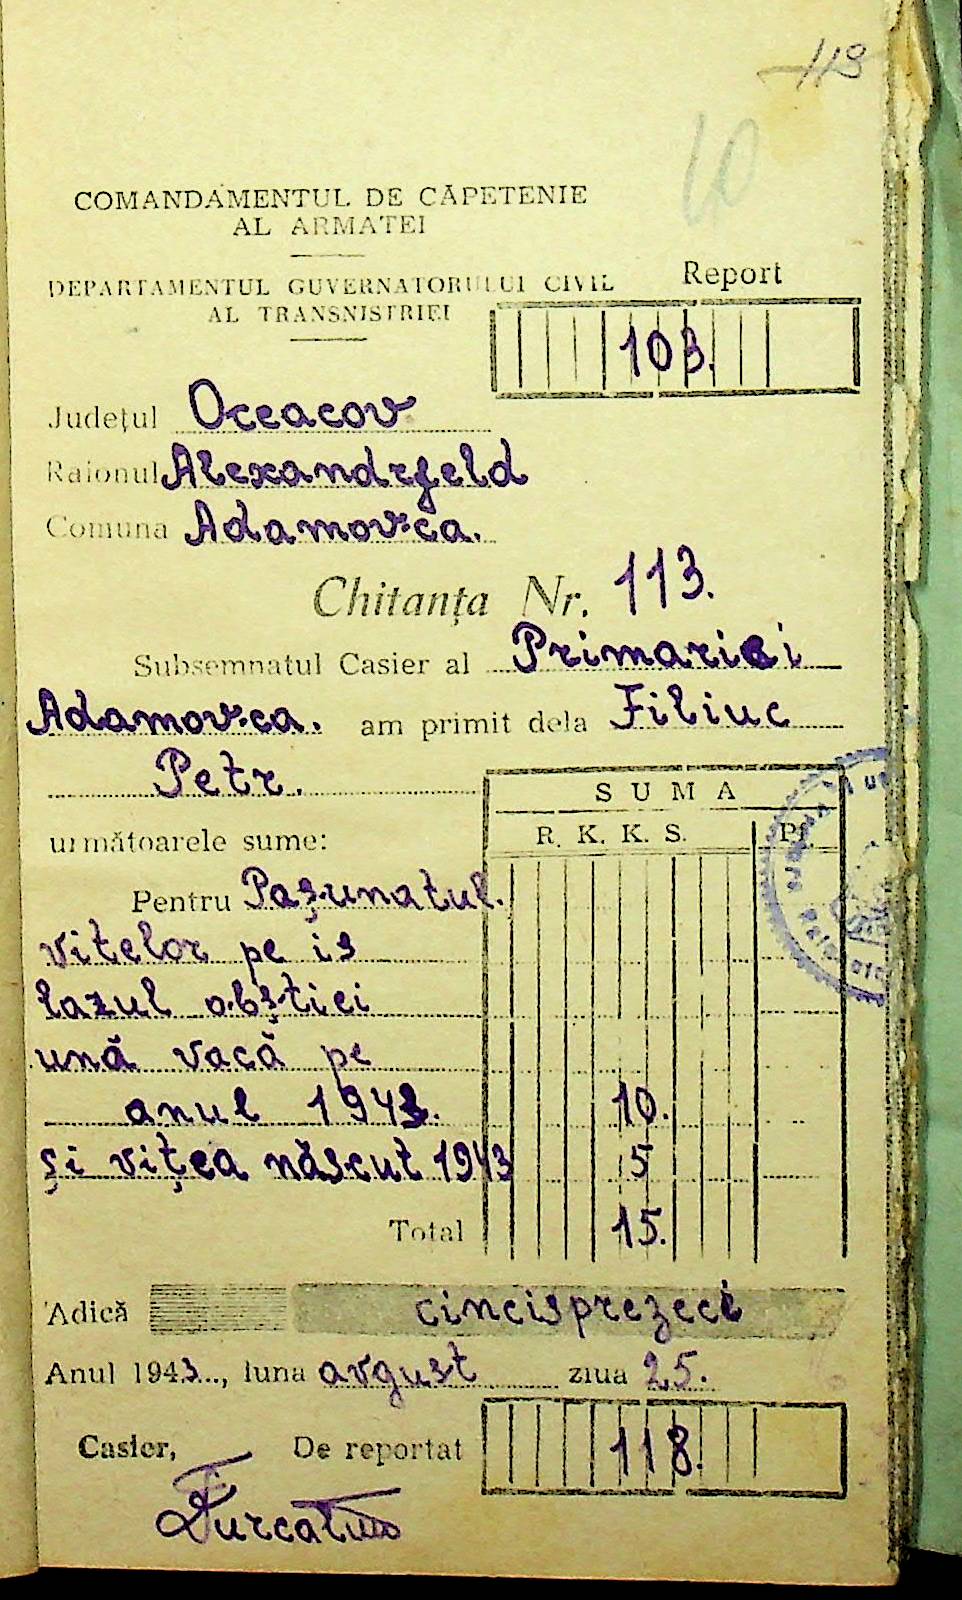 113
40
COMANDAMENTUL DE CĂPETENIE
AL ARMATEI
DEPARTAMENTUL GUVERNATORULUI CIVIL
AL TRANSNISTRIEI
Report
103.
Județul Oceacov
Raionul Alexandrfeld
Comuna Adamovca.
Chitanța Nr. 113.
Subsemnatul Casier al Primariei
Adamovca. am primit dela Filiuc
Petr.
SUMA
R. K. K. S. Pf.
următoarele sume:
Pentru Pașunatul
vitelor pe is
lazul obștiei
ună vacă pe
anul 1943. 10.
și vițea născut 1943 5
Total 15.
Adică cincisprezeci
Anul 1943.., luna avgust ziua 25.
Casier, De reportat 118.